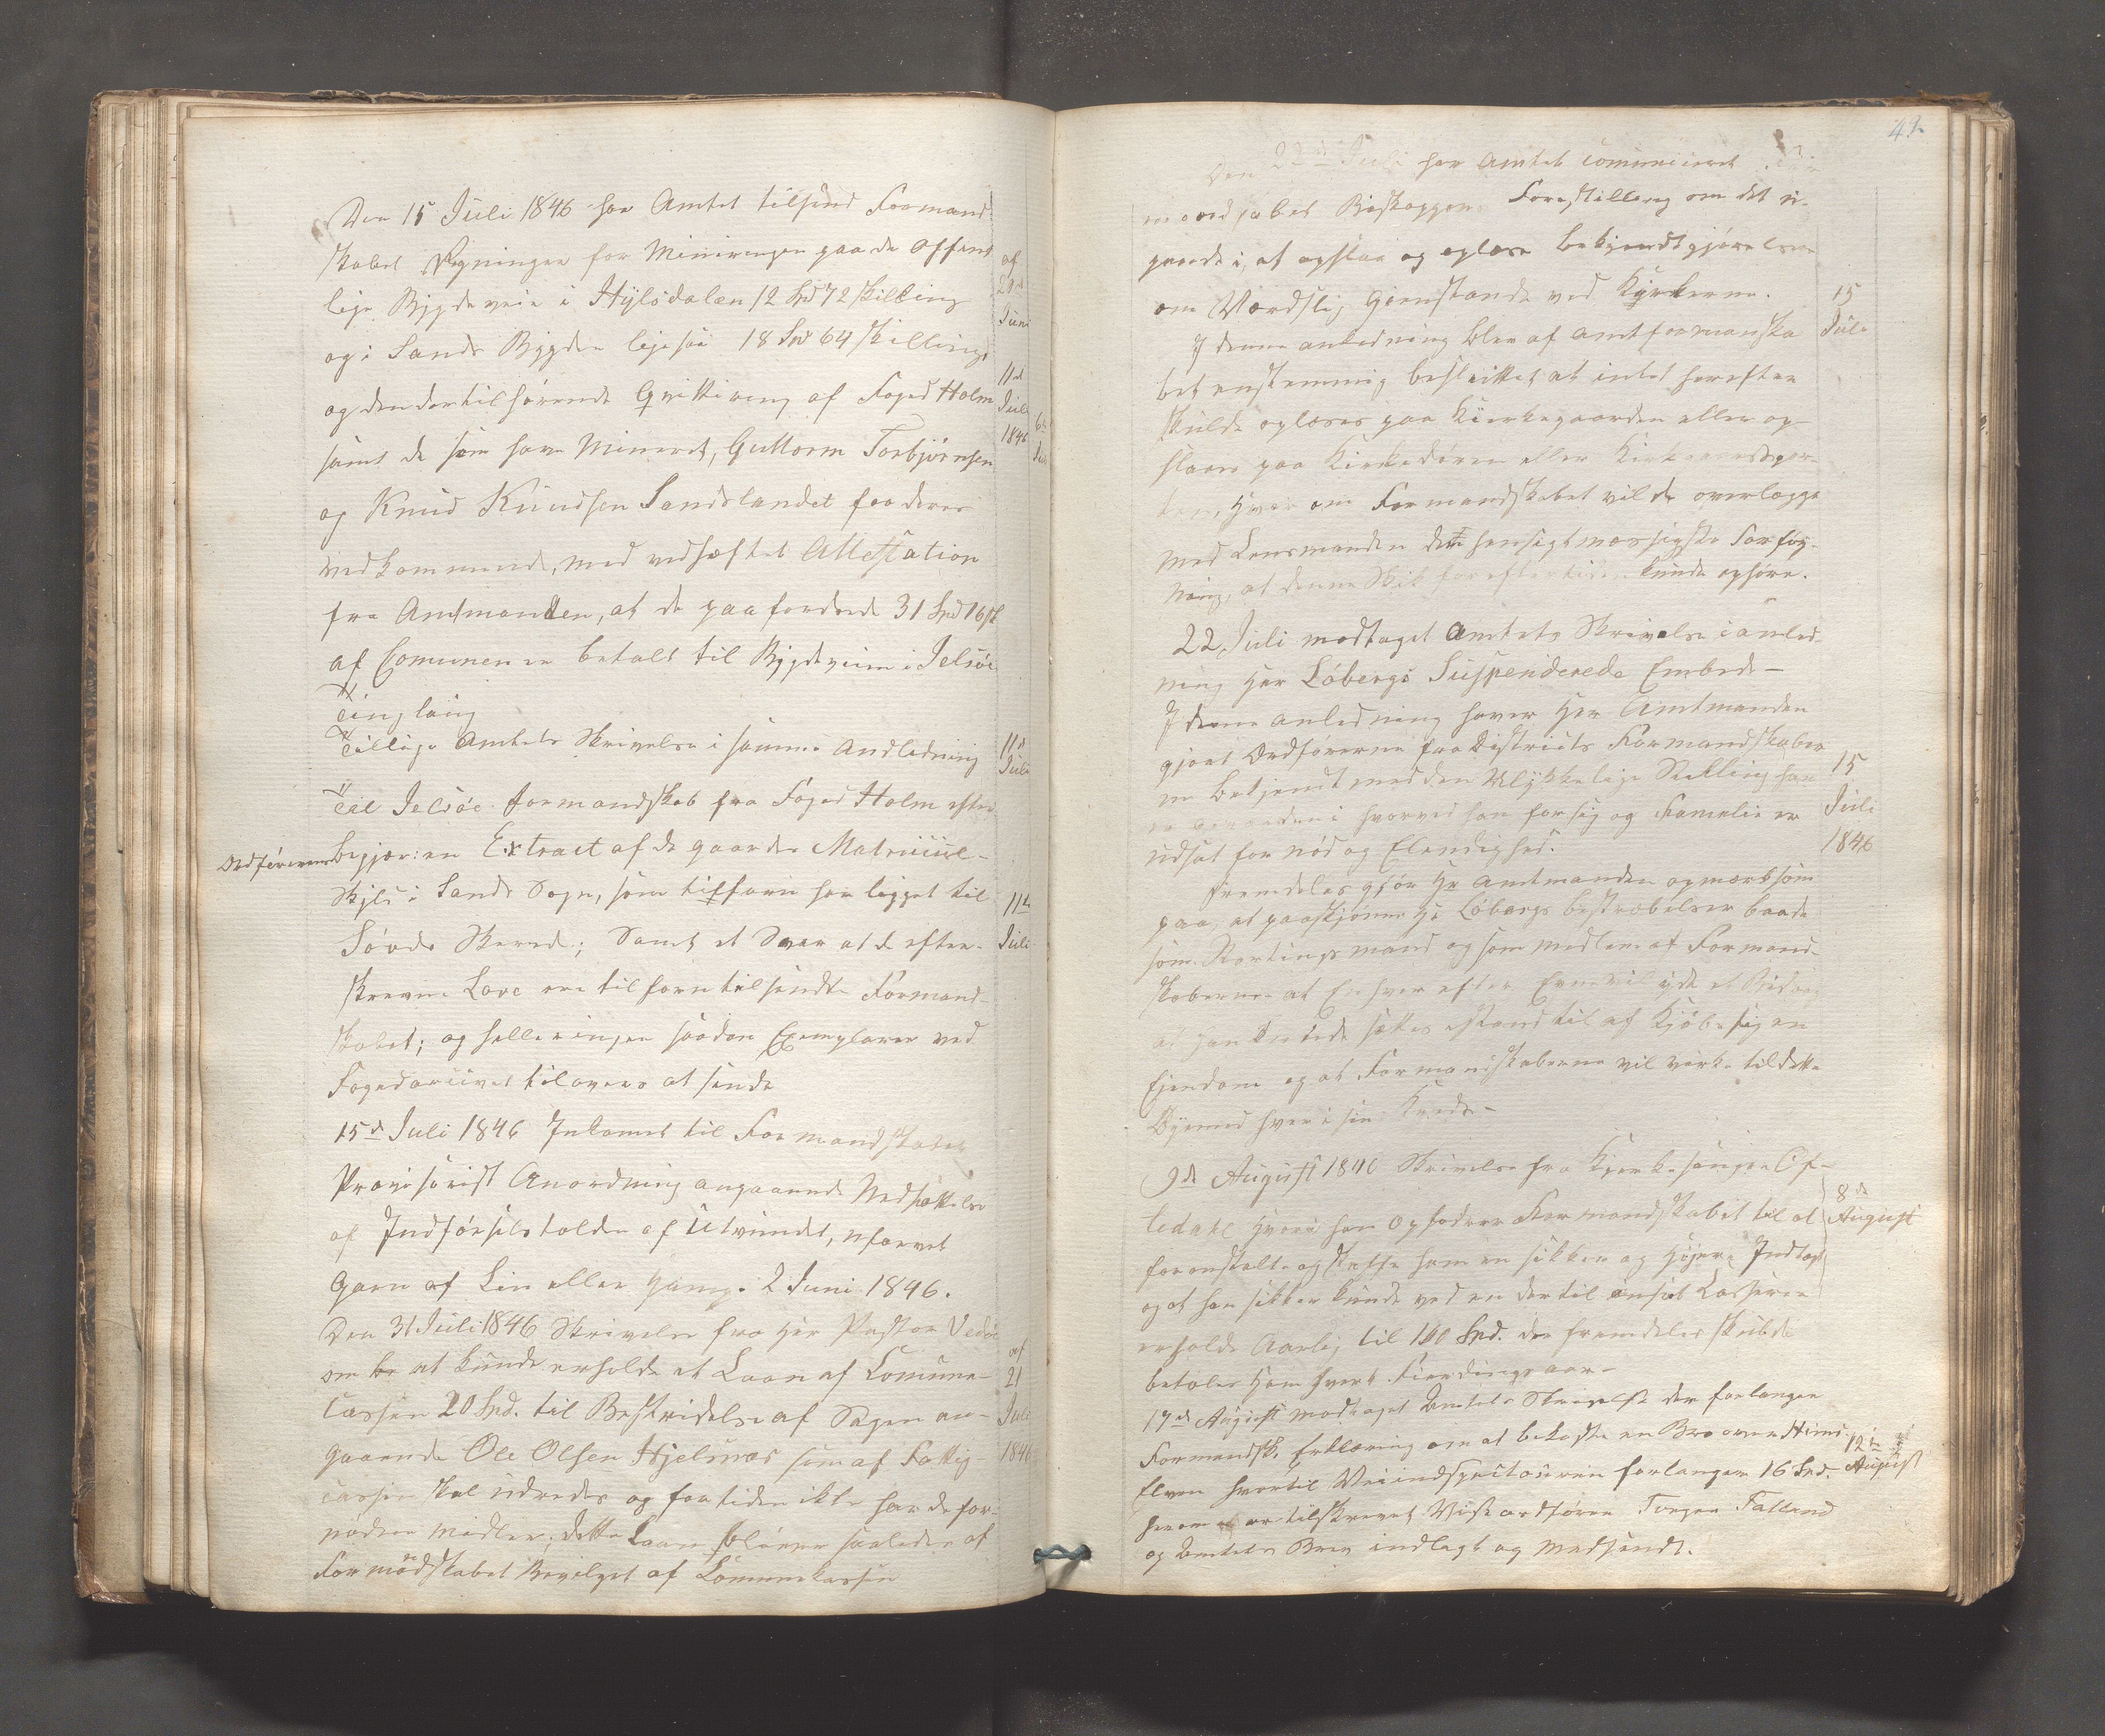 Den 15 Juli 1846 har Amtet tilsend Formand
skabet Regninger for Mineringen paa de offent
lige Bygdeveie i Hylsdalen 12 Spd 72 skilling
og i Sands Bygden ligesaa 18 Spd 64 skilling
og den dertilhørende Qvittering af Foged Holm
samt de som have Mineret, Guttorm Torbjørnsen
og Knud Knudsen Sandslandet fra deres
vedkommende, med vedhæftet Attestation
fra Amtmanden, at de paafordrede 31 Spd 16 sk
af Comunen er betalt til Bygdeveien i Jelsøe
Tinglaug
Tillige Amtets Skrivelse i samme Andledning
Til Jelsøe formandskab fra Foged Holm efter
Ordførerens Begjær: en Extract af de gaardes Matricul-
Skyld i Sands Sogn, som tilforn har ligget til
Søvde Skered; Samt et Svar at de efter-
skrevne Love ere tilforn tilsendte Formand-
skabet; og heller ingen saadan Exemplarer ved
Fogedarcivet tilovers at sende
15d Juli 1846 Indkomet til Formandskabet
Provisorisk Anordning angaaende Nedsættelse
af Indførselstolden af utvundet, ufarvet
Garn af Lin eller Hamp. 2 Juni 1846.
Den 31 Juli 1846 Skrivelse fra Her Pastor Vedøe
om at kunde erholde et Laan af Comune-
Cassen 20 Spd. til Bestridelse af Sagen an-
gaaende Ole Olsen Hjelsnæs som af Fattig-
cassen skal udredes og for tiden ikke har de for-
nødne midler; dette Laan bliver saaledes af
Formandskabet Bevilget af Comunekassen
af
Juni
11d
Juli
1846
11d
Juli
11te
Juli
af
21
Juli
1846
42
Den 22de Juli har Amtet comuniceret For
mandskabet Biskoppens Forestilling om det u-
passende i, at opslaa og oplæse bekjendtgjørelser
om Verdslig Gjenstande ved Kyrkerne.
I denne anledning blev af amtformanska
bet enstemmig besluttet at intet herefter
skulde oplæses paa Kirkegaarden eller op-
slaaes paa Kirkedøren eller
Hvor om Formandskabet vilde overlægge
med Lensmanden den hensigtmæssigste Forføy-
ning, at denne Skik for eftertiden kunde ophøre.
22 Juli modtaget Amtets Skrivelse i anled-
ning Her Löbergs Suspenderede Embede-
I denne anledning haver Her Amtmanden
gjort Ordførerne fra Districts Formandskaber
ne bekjendt med den Ulykkelige Stilling han
er geraaden i hvorved han for sig og Familie er
udsat for nød og Elendighed.
Fremdeles gjør Hr Amtmanden opmærksom
paa, at paaskjønne Hr Löbergs bestræbelser baade
som Stortingsmand og som medlem af Formand-
skaberne at Enhver efter Evne vil yde et Bidrag
at han derved sættes istand til at Kjøbe sig en
Ejendom og at Formandskaberne vil virke til dette
Øyemed hver i sin Kreds-
9de August 1846 Skrivelse fra Kjerkesanger Of-
tedahl hvori han Opfodrer Formandskabet til at
foranstalte og skaffe ham en sikker og Højere Indtægt
og at han sikker kunde ved en dertil ansat Casserer
erholde Aarlig til 100 Spd. der fremdeles skulde
betales Ham hvert Fierdingsaar-
17de August modtaget Amtets Skrivelse der forlanger
Formandsk. Erklæring om at bekoste en Bro over Hiims
Elven hvortil Veiinspecteuren forlanger 16 Spd.
herom er tilskrevet Viseordfører Torger Fatland
og Amtets Brev indlagt og Medsendt.
15
Juli
15
Juli
1846
8de
August
12te
August